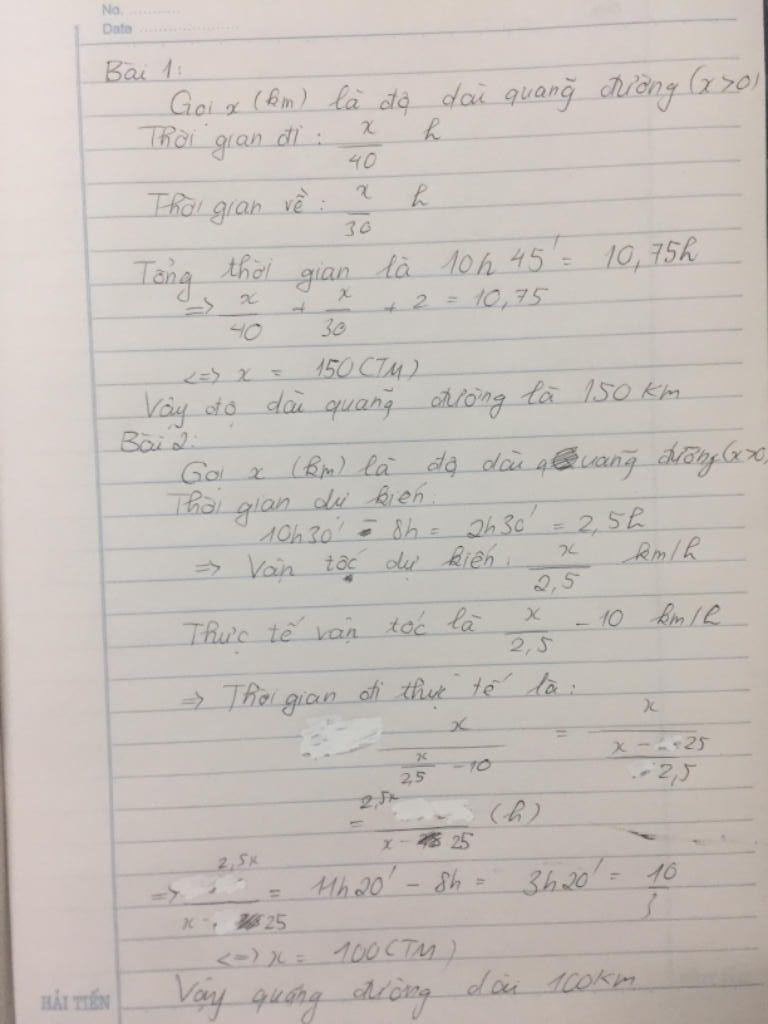 No. ............
Date ........................
Bài 1:
Gọi x (km) là độ dài quãng đường (x>0)
Thời gian đi : x/40 h
Thời gian về : x/30 h
Tổng thời gian là 10h 45' = 10,75h
=> x/40 + x/30 + 2 = 10,75
<=> x = 150 (TM)
Vậy độ dài quãng đường là 150 km
Bài 2:
Gọi x (km) là độ dài quãng đường (x>0)
Thời gian dự kiến:
10h30' - 8h = 2h30' = 2,5h
=> Vận tốc dự kiến: x/2,5 km/h
Thực tế vận tốc là x/2,5 - 10 km/h
=> Thời gian đi thực tế là:
x/(x/2,5 - 10) = x/((x - 25)/2,5)
= 2,5x/(x - 25) (h)
=> 2,5x/(x - 25) = 11h20' - 8h = 3h20' = 10/3
<=> x = 100 (TM)
Vậy quãng đường dài 100km
HẢI TIẾN